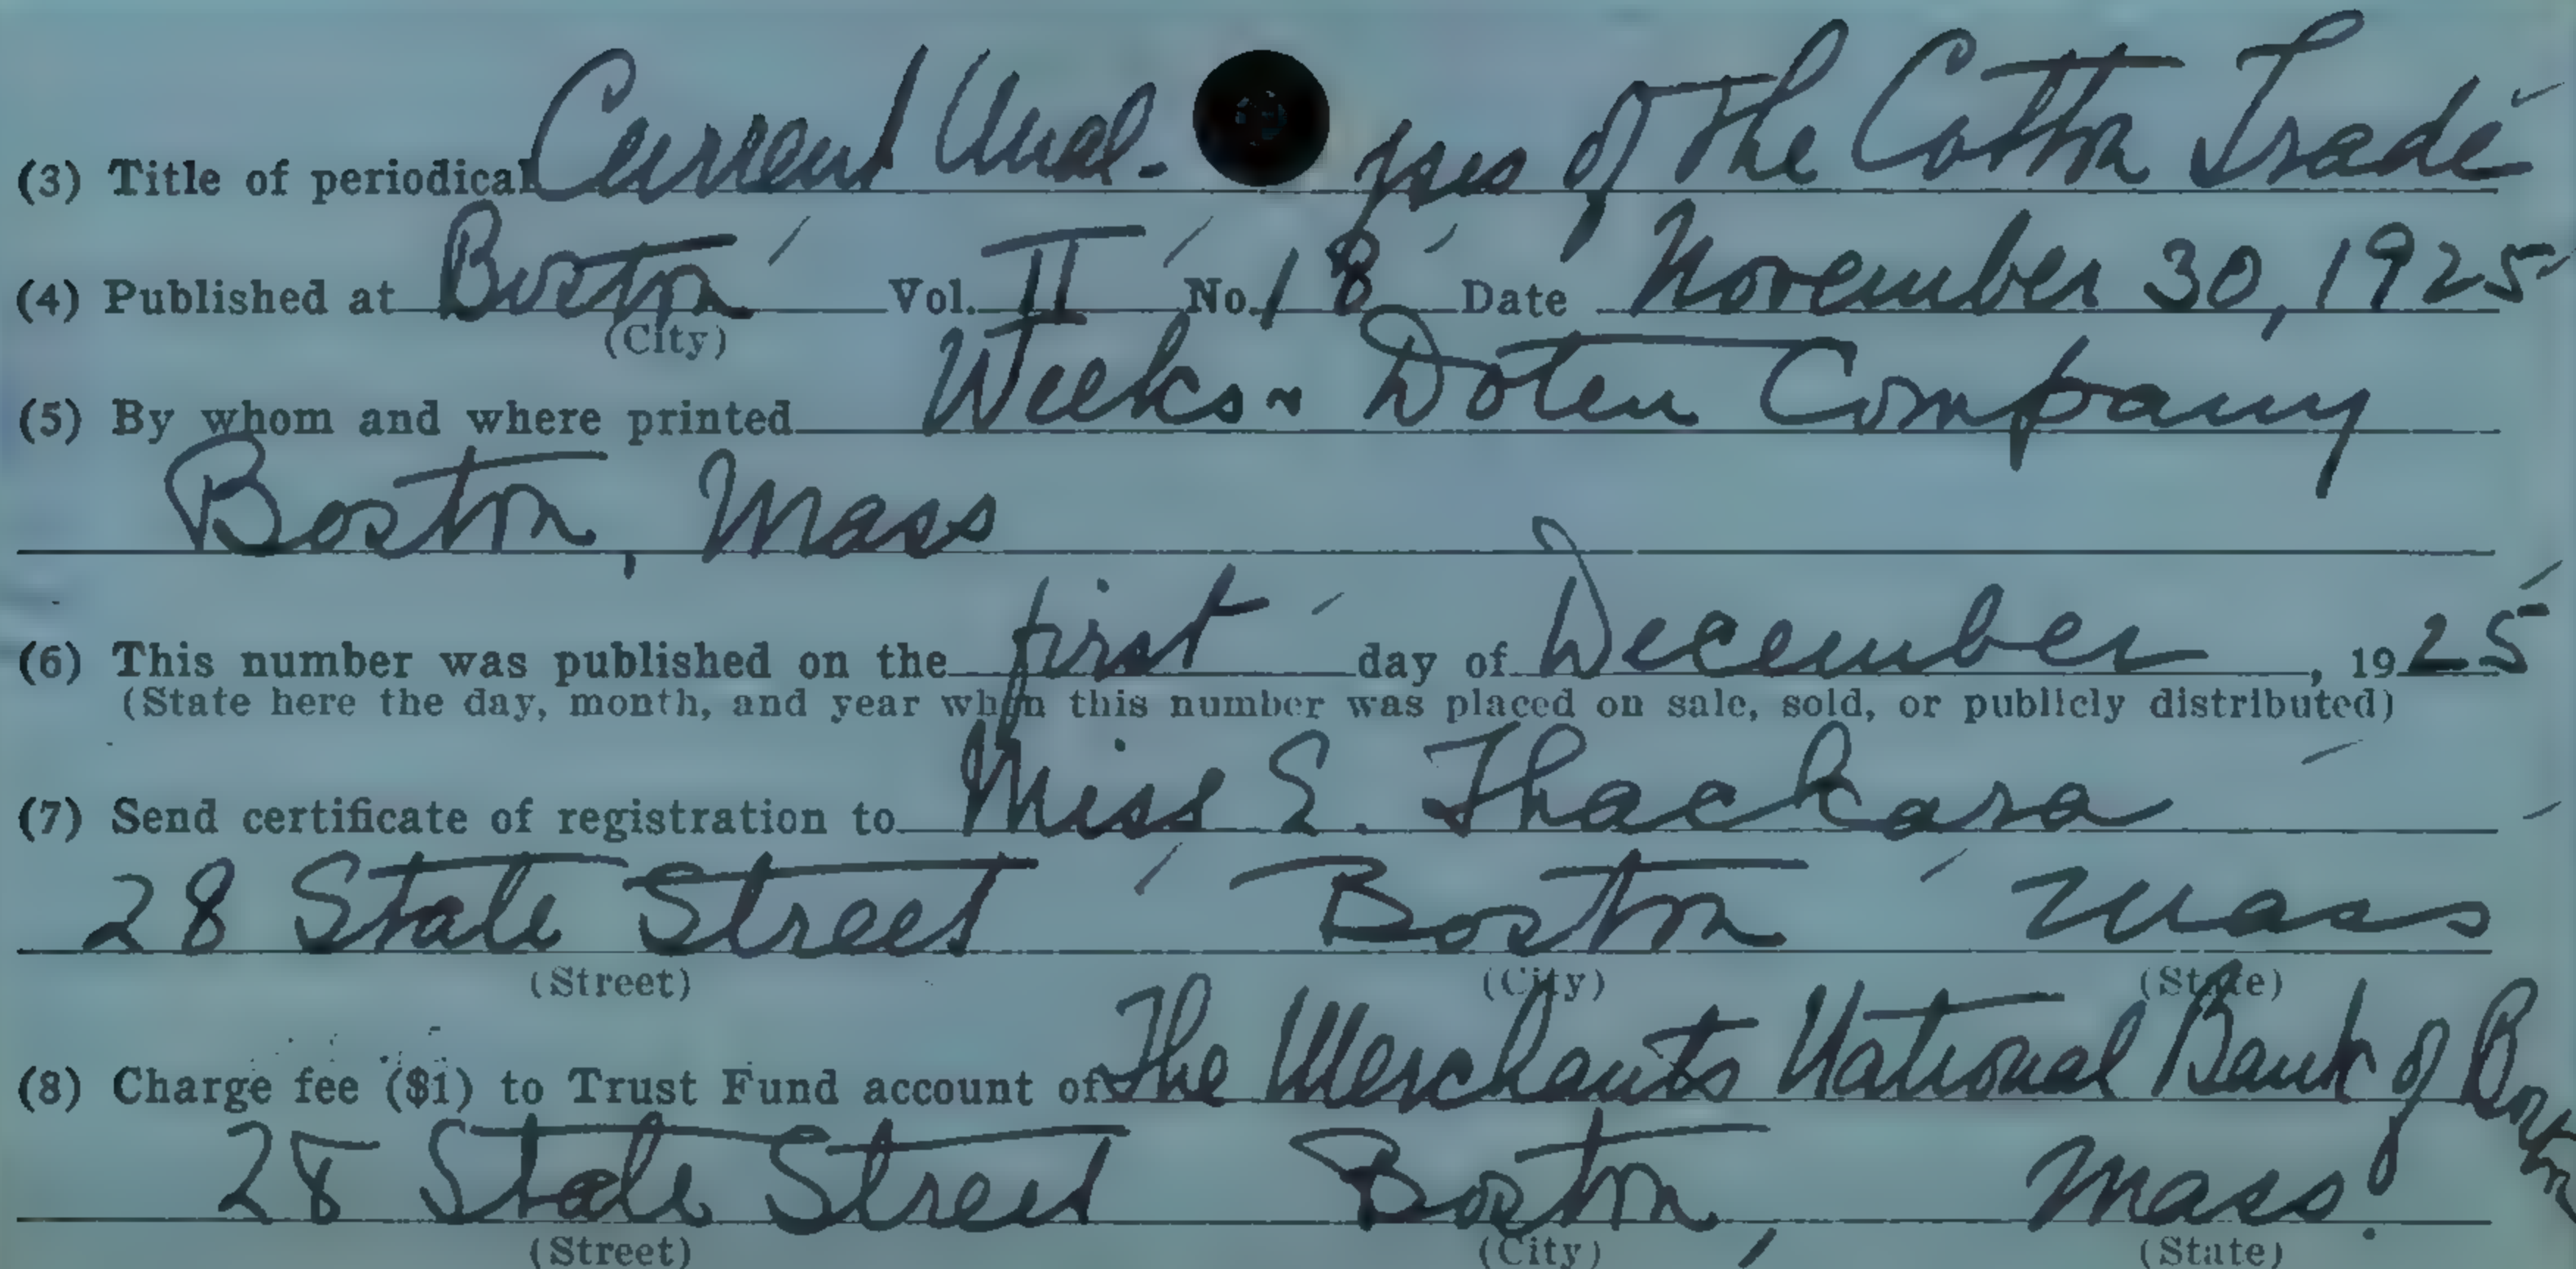 (3) Title of periodical Current Anal- yses of the Cotton Trade
(4) Published at Boston Vol. II No. 18 Date November 30, 1925
(City)
(5) By whom and where printed Weeks - Doten Company
Boston, Mass
(6) This number was published on the first day of December, 1925
(State here the day, month, and year when this number was placed on sale, sold, or publicly distributed)
(7) Send certificate of registration to Miss E. Thackara
28 State Street Boston Mass
(Street) (City) (State)
(8) Charge fee ($1) to Trust Fund account of The Merchants National Bank of Boston
28 State Street Boston, Mass.
(Street) (City) (State)